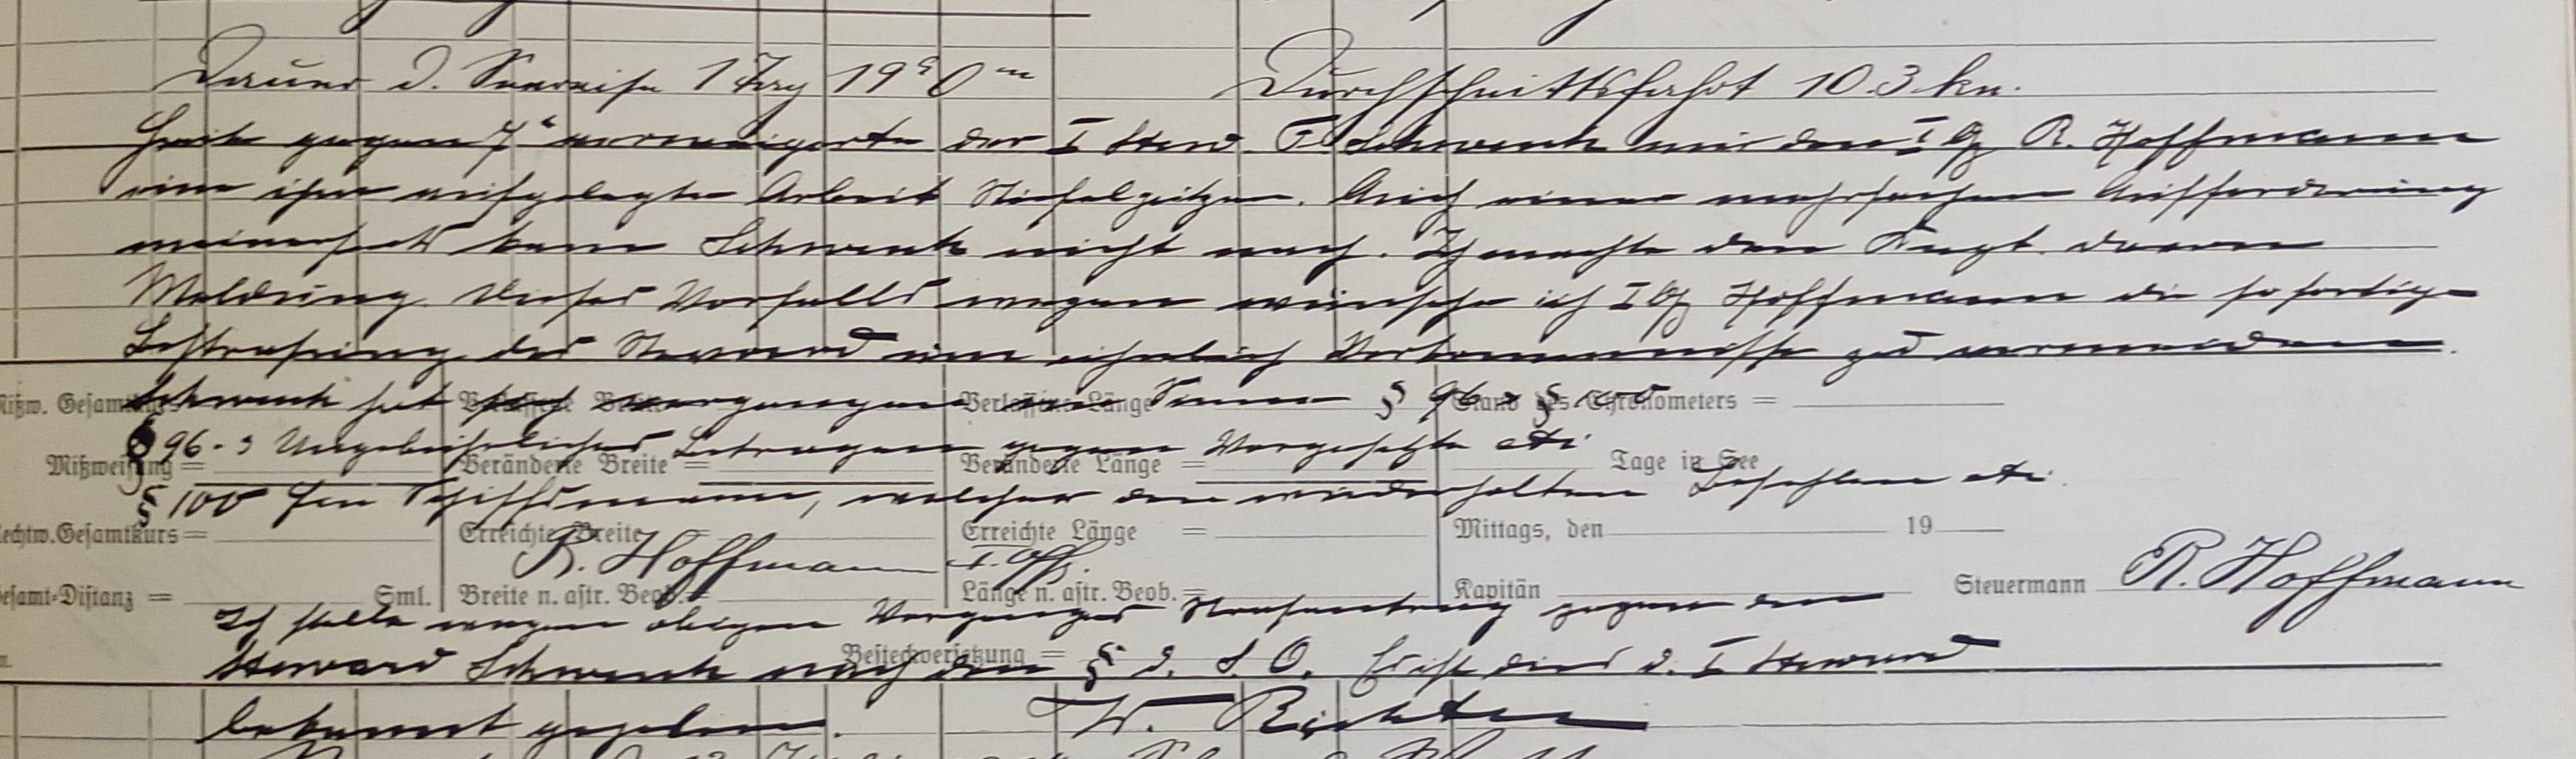 Dauer d. Seereise 1 Tag 19 h 0 m Durchschnittsfahrt 10.3 kn.
Heute gegen 7 h verweigerte der I Stew. F. Schwenk mir dem I Off R. Hoffmann
eine ihm aufgelegte Arbeit Stiefelputzen. Auch einer mehrfachen Aufforderung
meinerseits kam Schwenk nicht nach. Ich machte dem Kapt. davon
Meldung. Dieses Vorfalls wegen wünsche ich I Off Hoffmann die sofortige
Bestrafung des Steward um ähnliche Vorkommnisse zu vermeiden.
Schwenk hat sich vergangen im Sinne § 96 § 100
§ 96-3 Ungebührliches Betragen gegen Vorgesetzte etc
§ 100 Ein Schiffsmann, welcher den wiederholten Befehlen etc.
R. Hoffmann I. Off.
Ich stelle wegen obigen Vorganges Strafantrag gegen den
Steward Schwenk nach den § d. S. O. Es ist dies d. I Steward
bekannt gegeben. W. Richter
Mißw. Gesamtkurs Verlassene Breite Verlassene Länge Stand des Chronometers =
Mißweisung = Veränderte Breite = Veränderte Länge = Tage in See
Rechtw. Gesamtkurs = Erreichte Breite = Erreichte Länge = Mittags, den 19
Gesamt-Distanz = Sml. Breite n. astr. Beob. = Länge n. astr. Beob. = Kapitän Steuermann R. Hoffmann
Besteckversetzung =